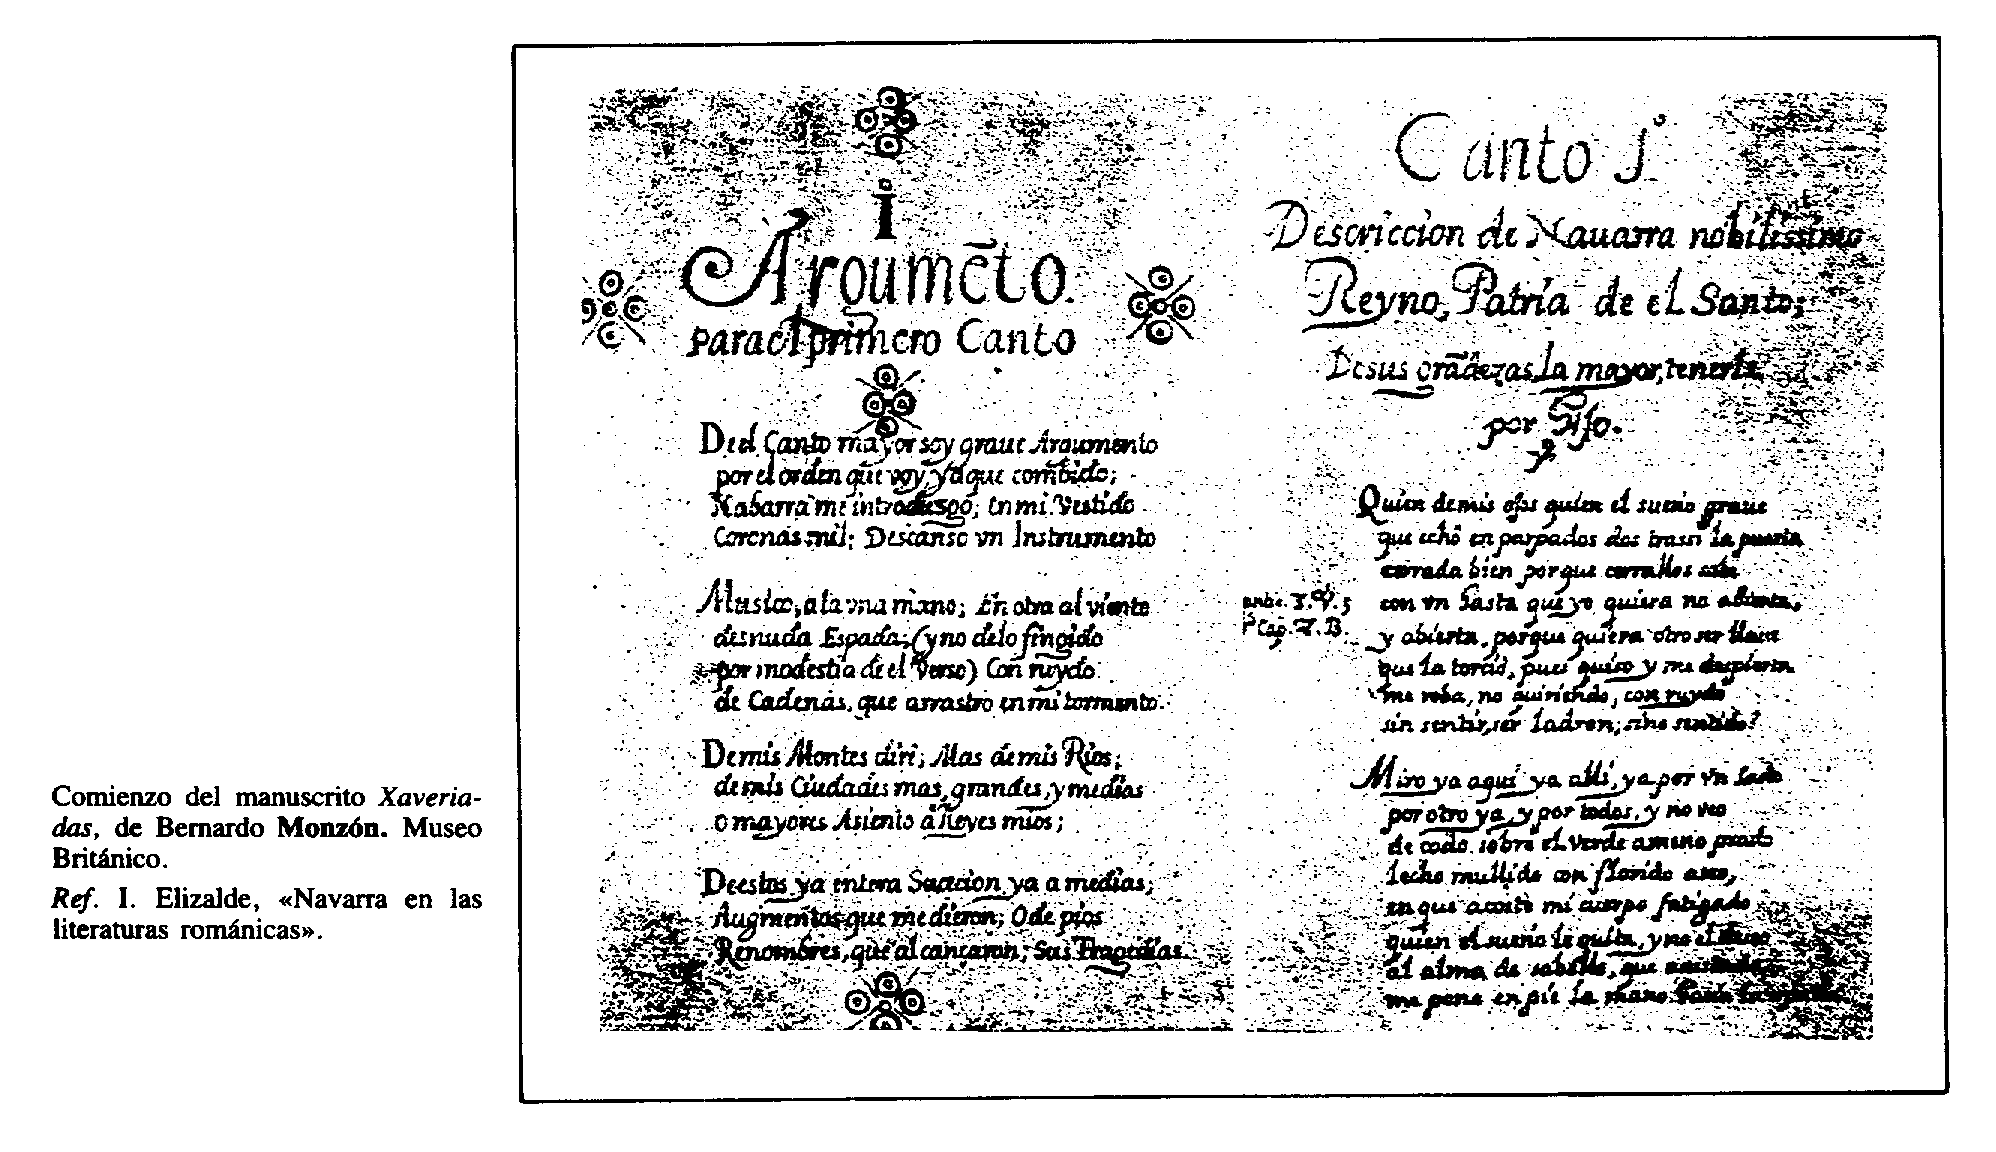 Comienzo del manuscrito Xaveria-
das, de Bernardo Monzón. Museo
Británico.
Ref. I. Elizalde, «Navarra en las
literaturas románicas».
I
Argumēto.
para el primero Canto
De el Canto mayor soy graue Argumento
por el orden que voy, y que combido;
Nabarra me introdusgo; en mi Vestido
Coronas mil; Descanso vn Instrumento
Musico, a la vna mano; En otra al viento
desnuda Espada; (y no de lo fingido
por modestia de el Verso) Con ruydo
de Cadenas, que arrastro en mi tormento.
De mis Montes diri; Mas de mis Rios;
de mis Ciudades mas, grandes, y medias
o mayores Asiento a Reyes mios;
De estos ya entera Suscion ya a medias;
Augmentos que me dieron; O de pios
Renombres, que alcançaron; Sus Tragedias.
Canto I.º
Descriccion de Nauarra nobilissimo
Reyno, Patria de el Santo;
De sus grādezas, la mayor, tenerle
por Hijo.
Quien de mis ojos quien el sueño graue
que echó en parpados dos tras si la puerta
cerrada bien porque cerralles sabe
con vn hasta que yo quiera no abierta,
y abierta, porque quiera otro ser llaue
que la torció, pues quiso y me despierta
me roba, no quiriendo, con ruydo
sin sentir, ser ladron; sino sentido?
Cap. 7. B.
Miro ya aqui, ya alli, ya por vn lado
por otro ya, y por todos, y no veo
de codo sobre el Verde ameno prado
lecho mullido con florido aseo,
en que acosté mi cuerpo fatigado
quien el sueño le quita, y no el
al alma de sabelle, que
me pone en pie la mano